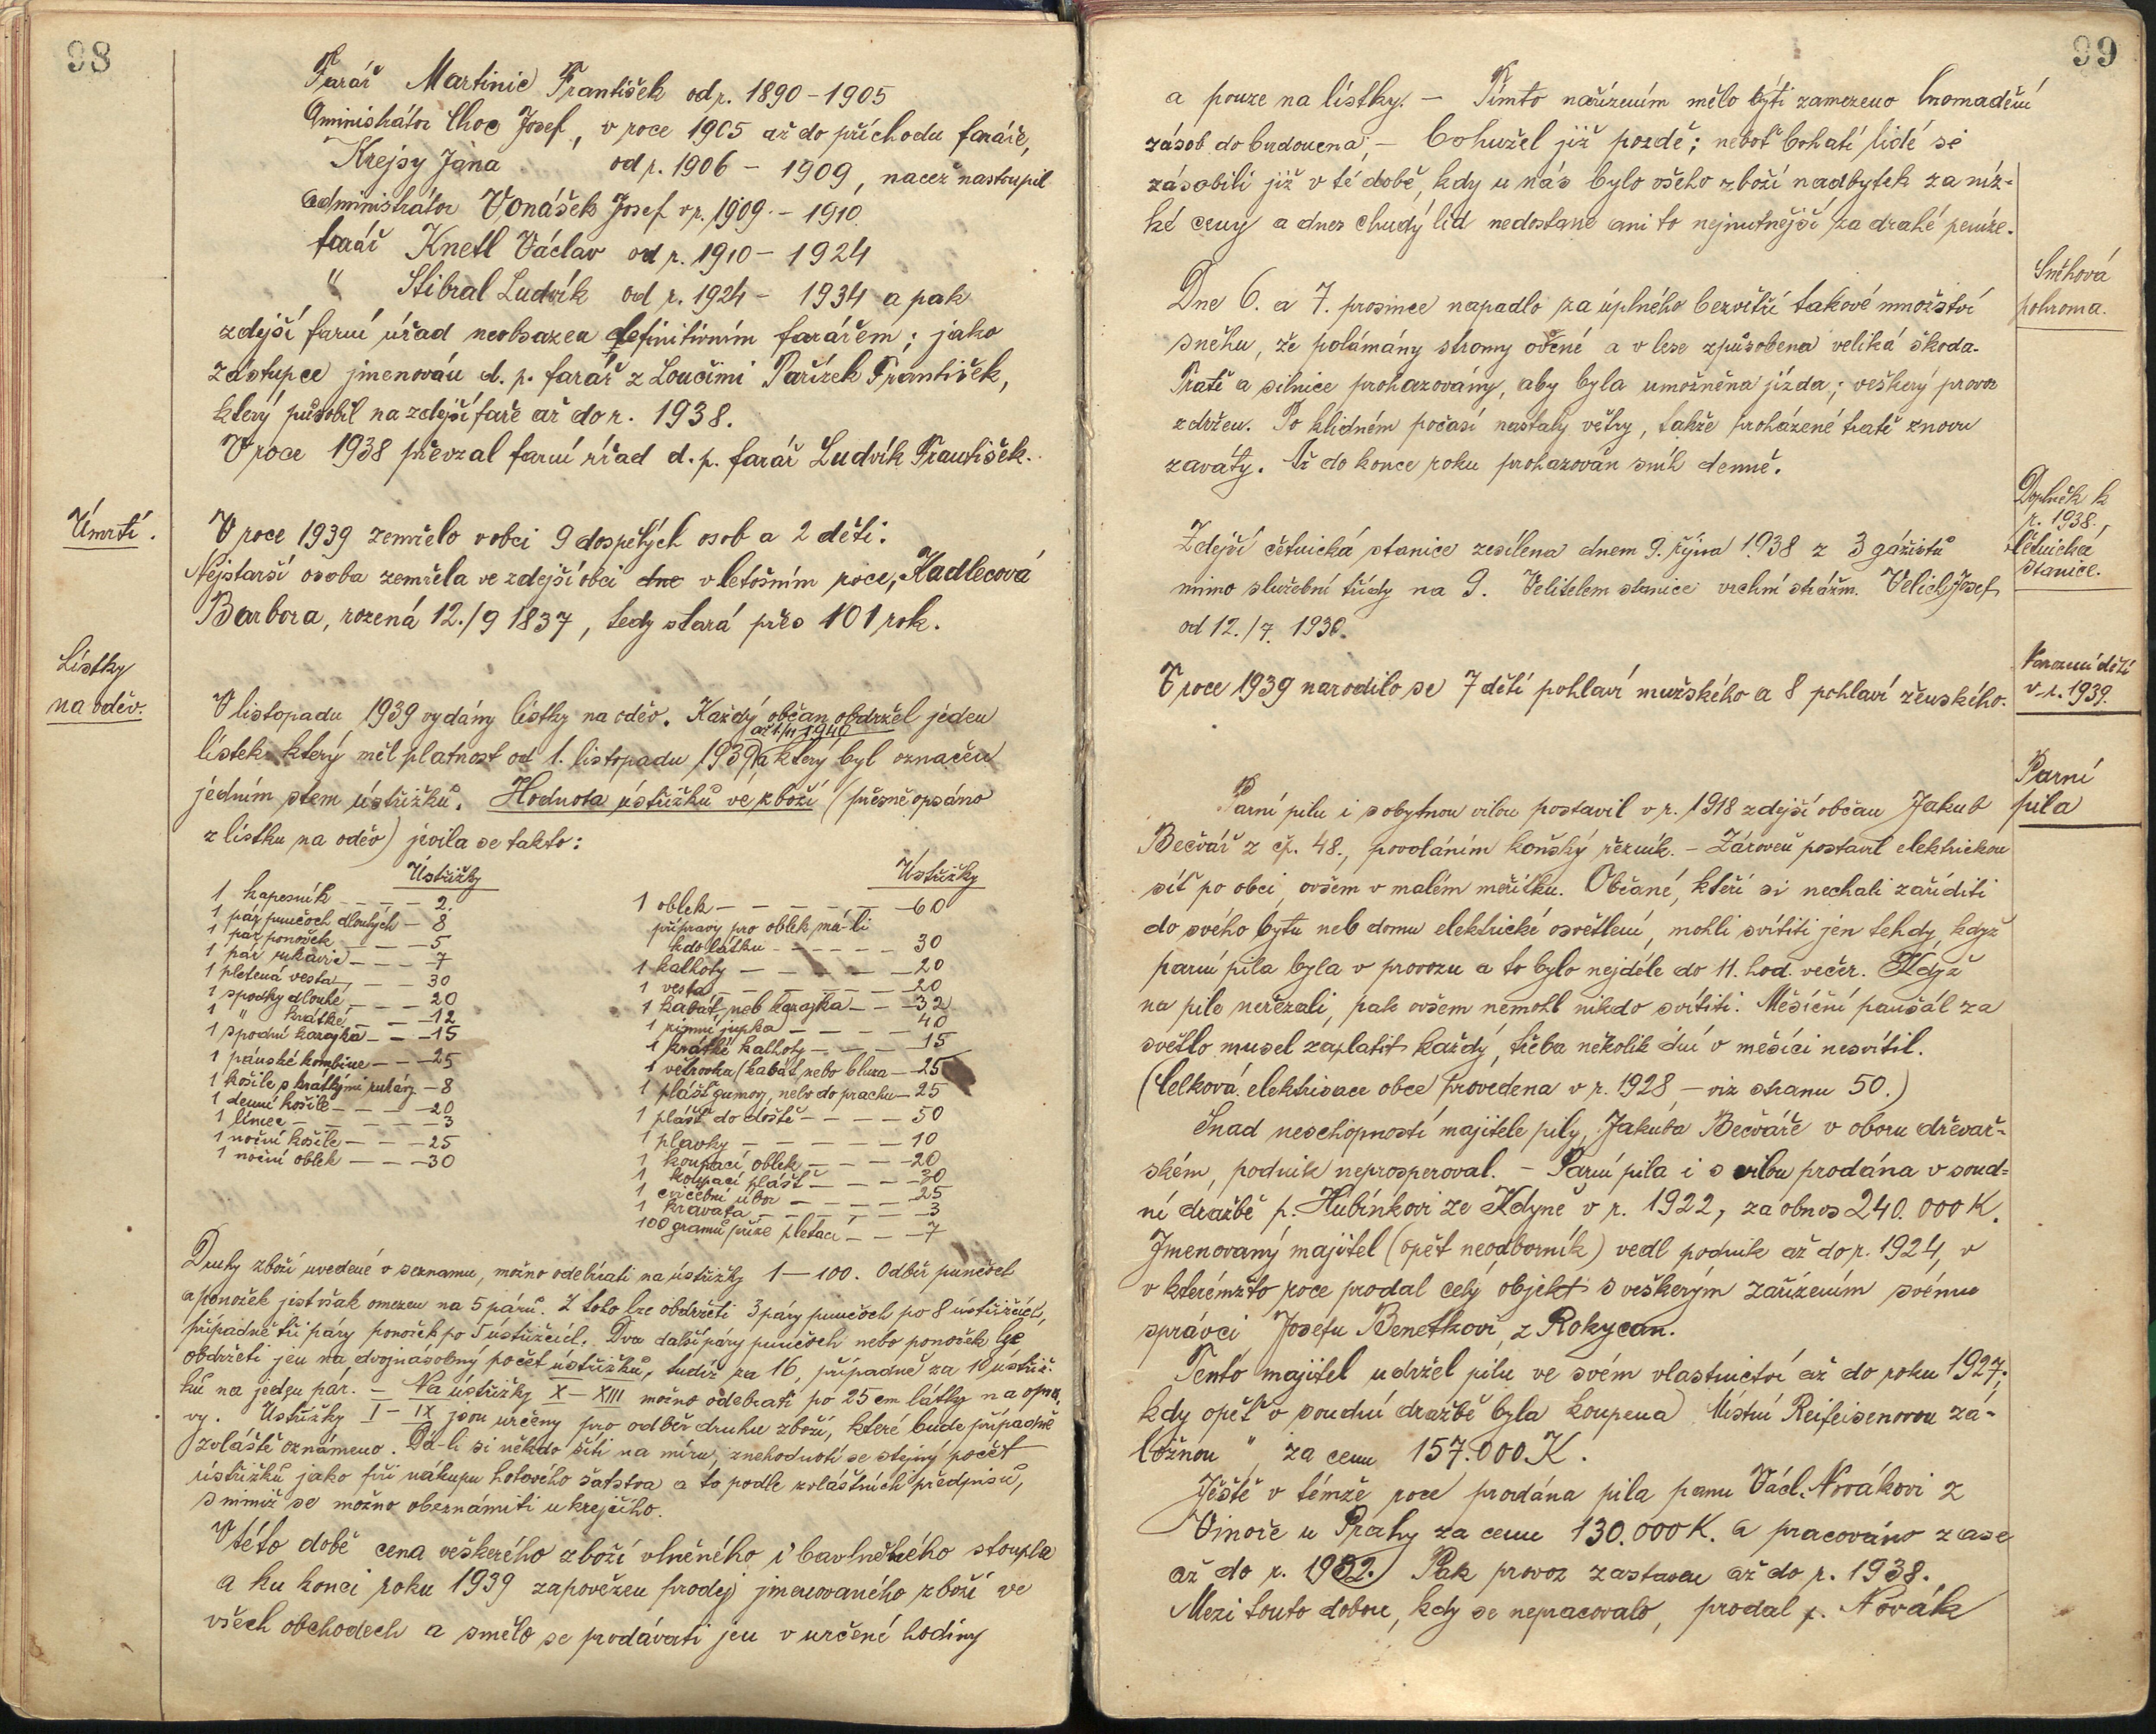 98
Farář Martinic František od r. 1890 - 1905
Aministrátor Choc Josef, v roce 1905 až do příchodu faráře,
Krejsy Jana od r. 1906 - 1909, načež nastoupil
administrátor Vonášek Josef v r. 1909. - 1910.
farář Knetl Václav od r. 1910 - 1924
" Stibral Ludvík od r. 1924 - 1934 a pak
zdejší farní úřad neobsazen definitivním farářem; jako
zástupce jmenován d. p. farář z Loučimi Pařízek František,
který působil na zdejší faře až do r. 1938.
V roce 1938 převzal farní úřad d. p. farář Ludvík František.
Úmrtí.
V roce 1939 zemřelo v obci 9 dospělých osob a 2 děti.
Nejstarší osoba zemřela ve zdejší obci dne v letošním roce, Kadlecová
Barbora, rozená 12./9 1837, tedy stará přes 101 rok.
Lístky
na oděv.
V listopadu 1939 vydány lístky na oděv. Každý občan obdržel jeden
až 1/11 1940
lístek který měl platnost od 1. listopadu 1939 a který byl označen
jedním stem ústřižků. Hodnota ústřižků ve zboží (přesně opsáno
z lístku na oděv) jevila se takto:
Ústřižky
1 kapesník - - - - 2.
1 pár punčoch dlouhých - 8
1 pár ponožek - - - 5
1 pár rukavic - - - 7
1 pletená vesta - - - 30
1 spodky dlouhé - - - 20
1 " krátké - - - 12
1 spodní kazajka - - - 15
1 pánské kombine - - - 25
1 košile s krátkými rukávy - 8
1 denní košile - - - - 20
1 límec - - - - - 3
1 noční košile - - - 25
1 noční oblek - - - 30
Ústřižky
1 oblek - - - - - - 60
přípravy pro oblek, má-li
kdo látku - - - - - 30
1 kalhoty - - - - - 20
1 vesta - - - - - - 20
1 kabát neb kazajka - - - 32
1 zimní jupka - - - - 40
1 krátké kalhoty - - - - 15
1 větrovka (kabát nebo bluza - 25
1 plášť gumový, nebo do prachu - 25
1 plášť do deště - - - - 50
1 plavky - - - - - 10
1 koupací oblek - - - - 20
1 koupací plášť - - - - 30
1 cvičební úbor - - - - 25
1 kravata - - - - - 3
100 gramů příze pletací - - - 7
Druhy zboží uvedené v seznamu, možno odebírati na ústřižky 1 - 100. Odběr punčoch
a ponožek jest však omezen na 5 párů. Z toho lze obdržeti 3 páry punčoch po 8 ústřižcích,
případně tři páry ponožek po 5 ústřižcích. Dva další páry punčoch nebo ponožek lze
obdržeti jen na dvojnásobný počet ústřižků, tudíž za 16, případně za 10 ústřiž-
ků na jeden pár. - Na ústřižky X - XIII možno odebrati po 25 cm látky na opra-
vy. Ústřižky I - IX jsou určeny pro odběr druhu zboží, které bude případně
zvláště oznámeno. Dá-li si někdo šíti na míru, znehodnotí se stejný počet
ústřižků jako při nákupu hotového šatstva a to podle zvláštních předpisů,
s nimiž se možno obeznámiti u krejčího.
V této době cena veškerého zboží vlněného i bavlněného stoupla
a ku konci roku 1939 zapovězen prodej jmenovaného zboží ve
všech obchodech a smělo se prodávati jen v určené hodiny
99
a pouze na lístky. - Tímto nařízením mělo býti zamezeno hromadění
zásob do budoucna; - bohužel již pozdě; neboť bohatí lidé se
zásobili již v té době, kdy u nás bylo všeho zboží nadbytek za níz-
ké ceny a dnes chudý lid nedostane ani to nejnutnější za drahé peníze.
Sněhová
pohroma.
Dne 6. a 7. prosince napadlo za úplného bezvětří takové množství
sněhu, že polámány stromy ovocné a v lese způsobena veliká škoda.
Tratě a silnice prohazovány, aby byla umožněna jízda; veškerý provoz
zdržen. Po klidném počasí nastaly větry, takže proházené tratě znovu
zaváty. Až do konce roku prohazován sníh denně.
Doplněk k
r. 1938.,
četnická
stanice.
Zdejší četnická stanice zesílena dnem 9. října 1938 z 3 gážistů
mimo služební třídy na 9. Velitelem stanice vrchní strážm. Velich Josef
od 12./7. 1930.
Narození dětí
v r. 1939.
V roce 1939 narodilo se 7 dětí pohlaví mužského a 8 pohlaví ženského.
Parní
pila
Parní pilu i s obytnou vilou postavil v r. 1918 zdejší občan Jakub
Bečvář z čp. 48., povoláním koňský řezník. - Zároveň postavil elektrickou
síť po obci, ovšem v malém měřítku. Občané, kteří si nechali zaříditi
do svého bytu neb domu elektrické osvětlení, mohli svítiti jen tehdy, když
parní pila byla v provozu a to bylo nejdéle do 11. hod. večer. Když
na pile neřezali, pak ovšem nemohl nikdo svítiti. Měsíční paušál za
světlo musel zaplatit každý, třeba několik dní v měsíci nesvítil.
(Celková elektrisace obce provedena v r. 1928 - viz stranu 50.)
Snad neschopností majitele pily, Jakuba Bečváře v oboru dřevař-
ském, podnik neprosperoval. - Parní pila i s vilou prodána v soud-
ní dražbě p. Hubínkovi ze Kdyně v r. 1922, za obnos 240.000 K.
Jmenovaný majitel (opět neodborník) vedl podnik až do r. 1924, v
v kterémžto roce prodal celý objekt s veškerým zařízením svému
správci Josefu Benetkovi, z Rokycan.
Tento majitel udržel pilu ve svém vlastnictví až do roku 1927,
kdy opět v soudní dražbě byla koupena Místní Reifeisenovou zá-
ložnou " za cenu 157.000 K.
Ještě v témže roce prodána pila panu Václ. Novákovi z
Vinoře u Prahy za cenu 130.000 K. a pracováno zase
až do r. 1932. Pak provoz zastaven až do r. 1938.
Mezi touto dobou, kdy se nepracovalo, prodal p. Novák